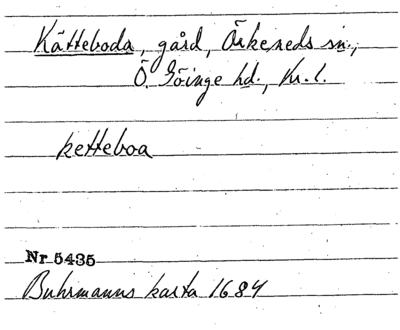 Kätteboda, gård, Örkeneds sn.,
Ö. Göinge hd., Kr. l.
ketteboa
Nr 5435
Buhrmanns karta 1684